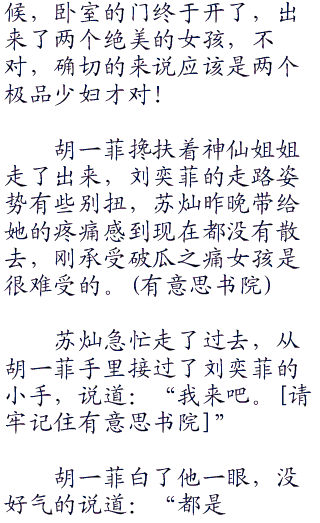 候，卧室的门终于开了，出
来了两个绝美的女孩，不
对，确切的来说应该是两个
极品少妇才对！
胡一菲搀扶着神仙姐姐
走了出来，刘奕菲的走路姿
势有些别扭，苏灿昨晚带给
她的疼痛感到现在都没有散
去，刚承受破瓜之痛女孩是
很难受的。(有意思书院)
苏灿急忙走了过去，从
胡一菲手里接过了刘奕菲的
小手，说道：“我来吧。[请
牢记住有意思书院]”
胡一菲白了他一眼，没
好气的说道：“都是